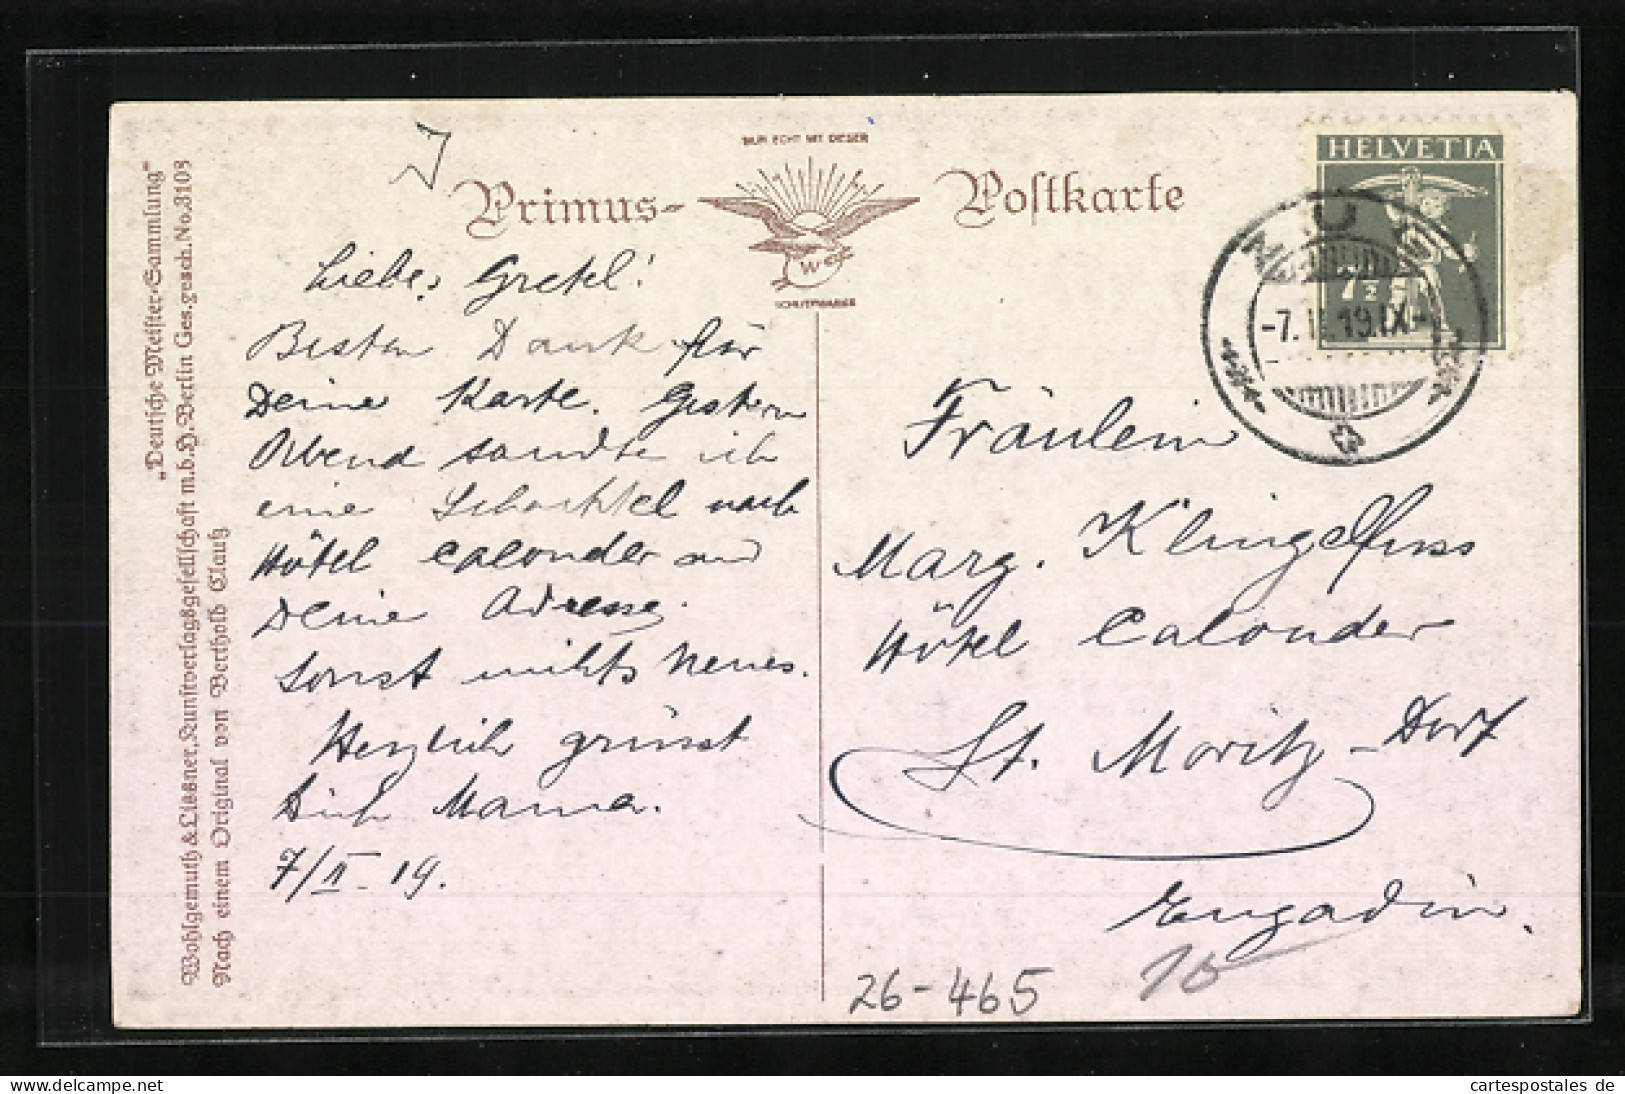 „Deutsche Meister-Sammlung“
Wohlgemuth & Lissner, Kunstverlagsgesellschaft m.b.H. Berlin Ges.gesch. No. 3103
Nach einem Original von Berthold Clauß
Primus-Postkarte
NUR ECHT MIT DIESER
W
SCHUTZMARKE
Liebes Gretel!
Besten Dank für
Deine Karte. Gestern
Abend sandte ich
eine Schachtel nach
Hôtel Calonder und
Deine Adresse.
Sonst nichts Neues.
Herzlich grüsst
Dich Mama.
7/II 19.
HELVETIA
7½
-7.II.19.IX-
Fräulein
Marg. Klingelfuss
Hôtel Calonder
St. Moritz-Dorf
Engadin.
26-465
10
www.cartespostales.de
cartespostales de